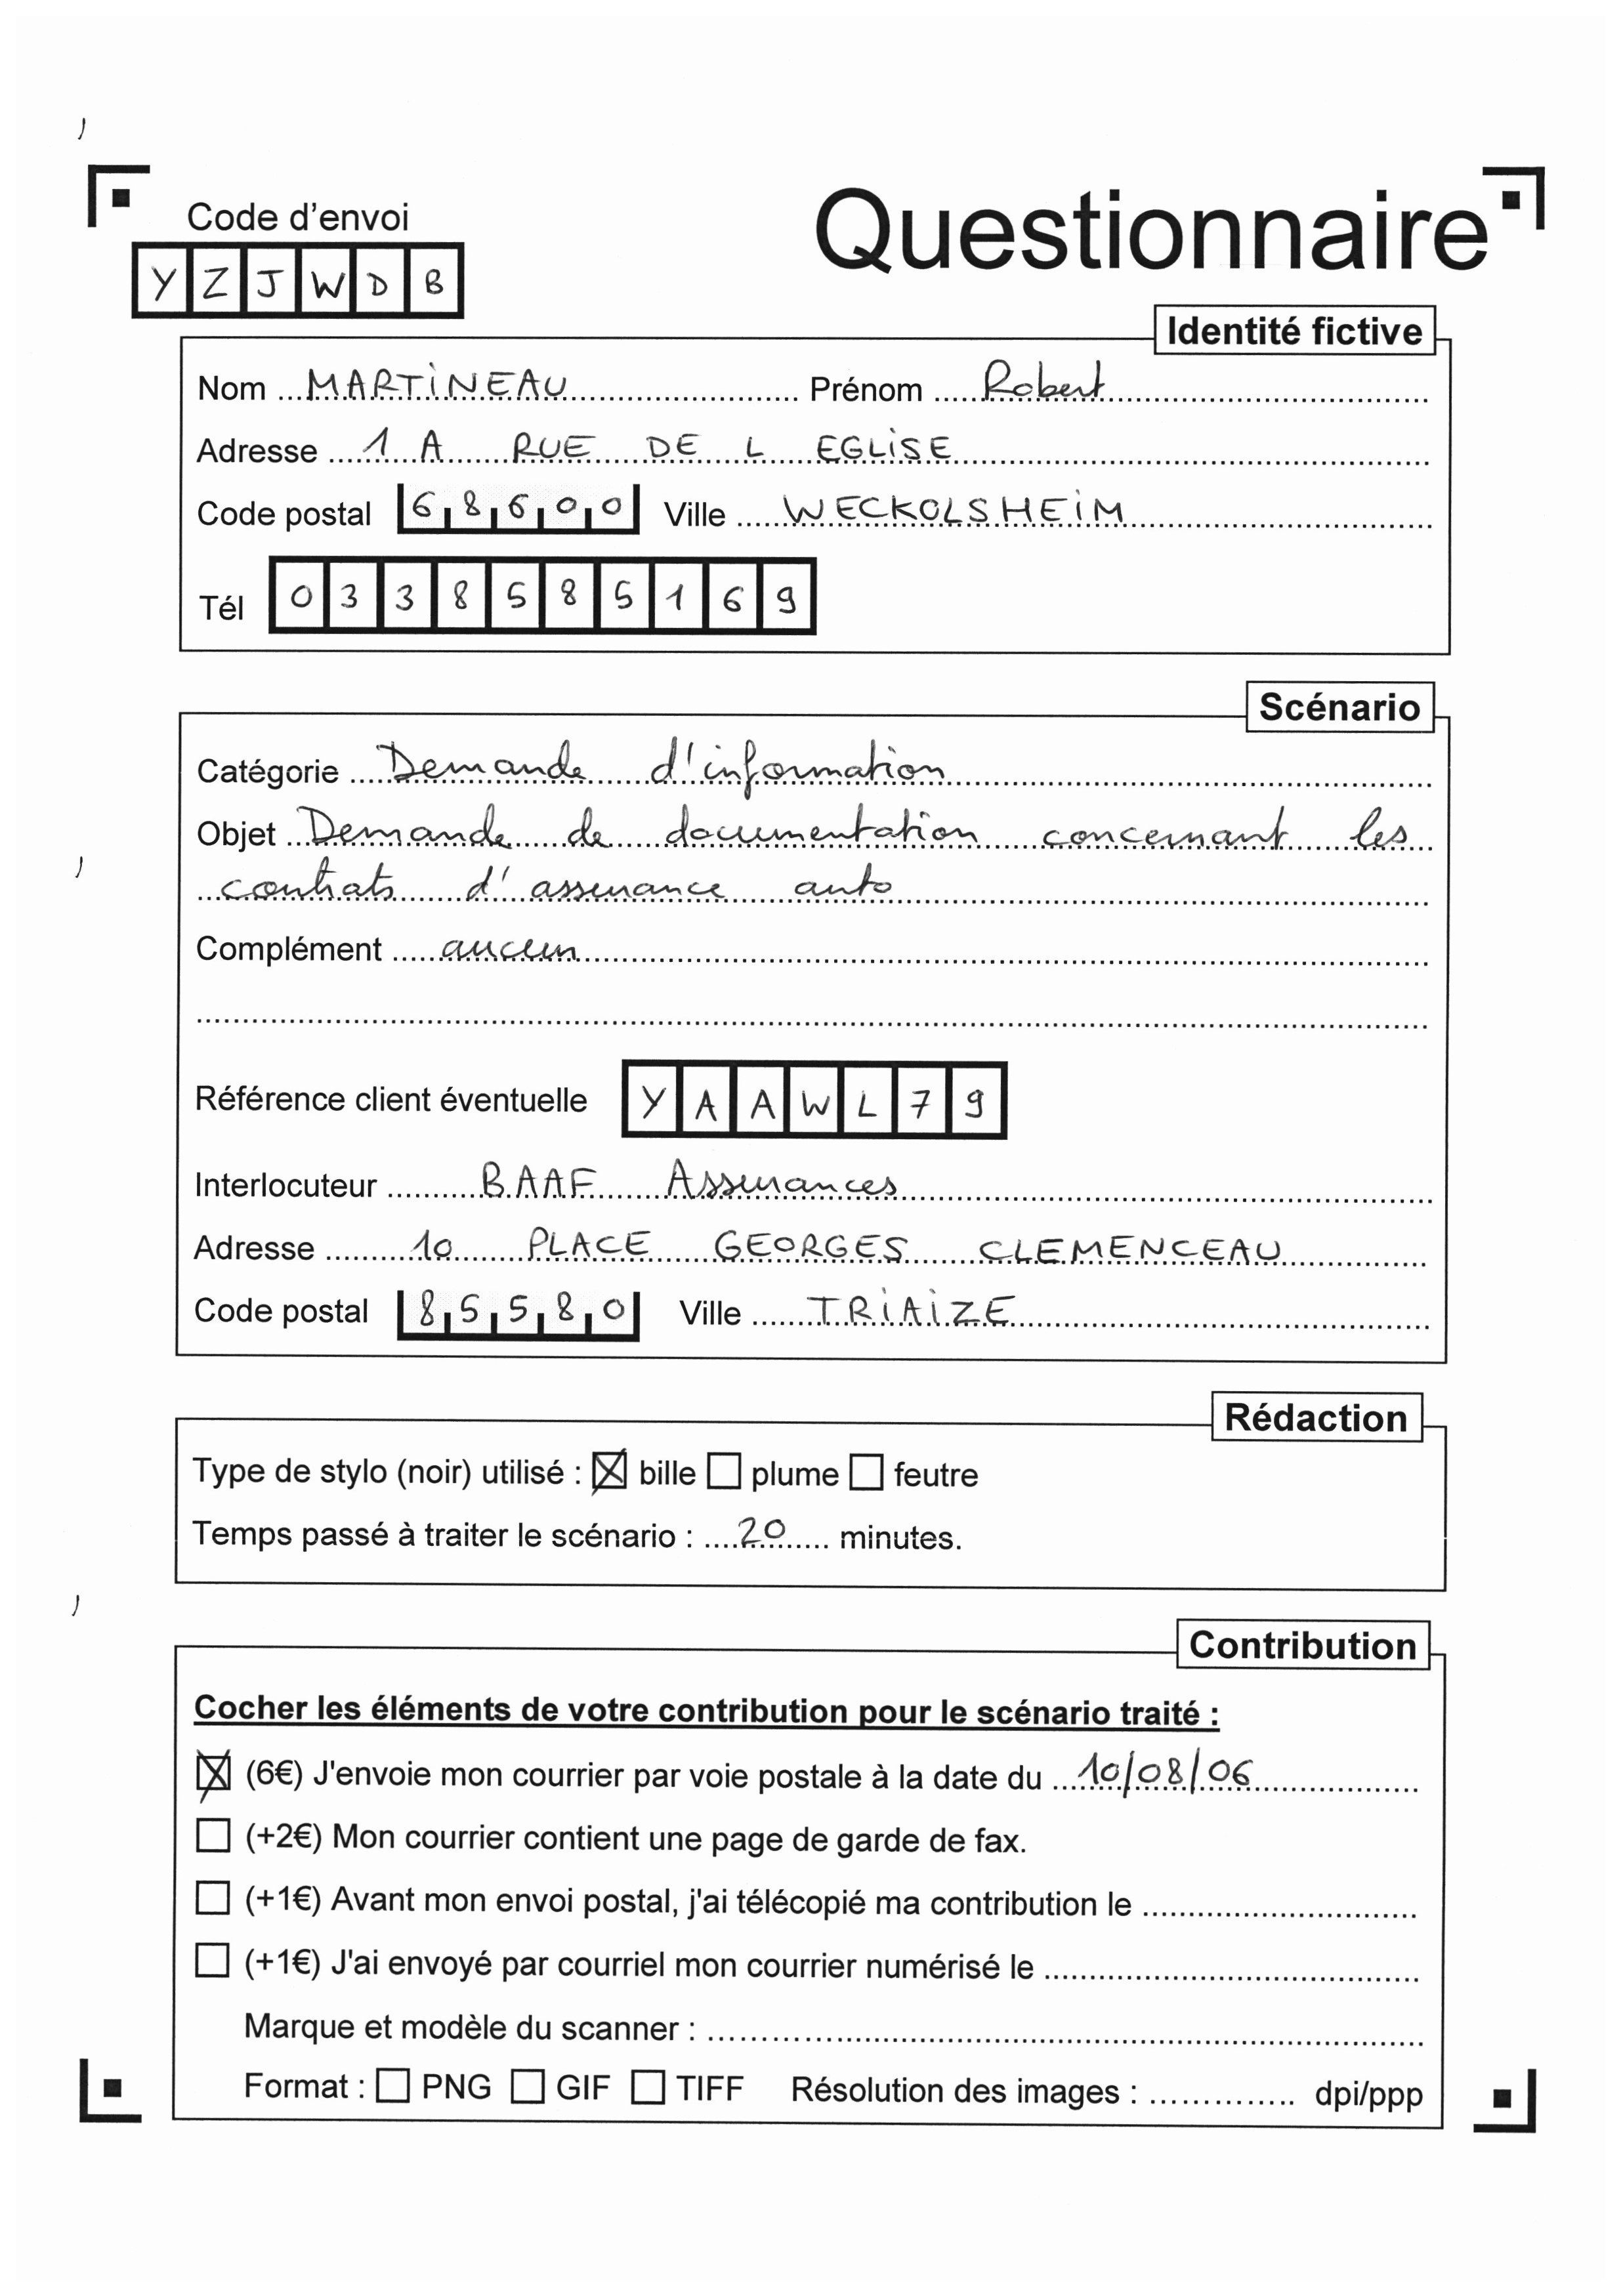 Code d'envoi
Questionnaire
Y Z J W D B
Identité fictive
Nom MARTINEAU Prénom Robert
Adresse 1 A RUE DE L EGLISE
Code postal 68600 Ville WECKOLSHEIM
Tél 0338585169
Scénario
Catégorie Demande d'information
Objet Demande de documentation concernant les
contrats d'assurance auto
Complément aucun
Référence client éventuelle Y A A W L 7 9
Interlocuteur BAAF Assurances
Adresse 10 PLACE GEORGES CLEMENCEAU
Code postal 85580 Ville TRIAIZE
Rédaction
Type de stylo (noir) utilisé : ☒ bille ☐ plume ☐ feutre
Temps passé à traiter le scénario : 20 minutes.
Contribution
Cocher les éléments de votre contribution pour le scénario traité :
☒ (6€) J'envoie mon courrier par voie postale à la date du 10/08/06
☐ (+2€) Mon courrier contient une page de garde de fax.
☐ (+1€) Avant mon envoi postal, j'ai télécopié ma contribution le
☐ (+1€) J'ai envoyé par courriel mon courrier numérisé le
Marque et modèle du scanner :
Format : ☐ PNG ☐ GIF ☐ TIFF Résolution des images : dpi/ppp